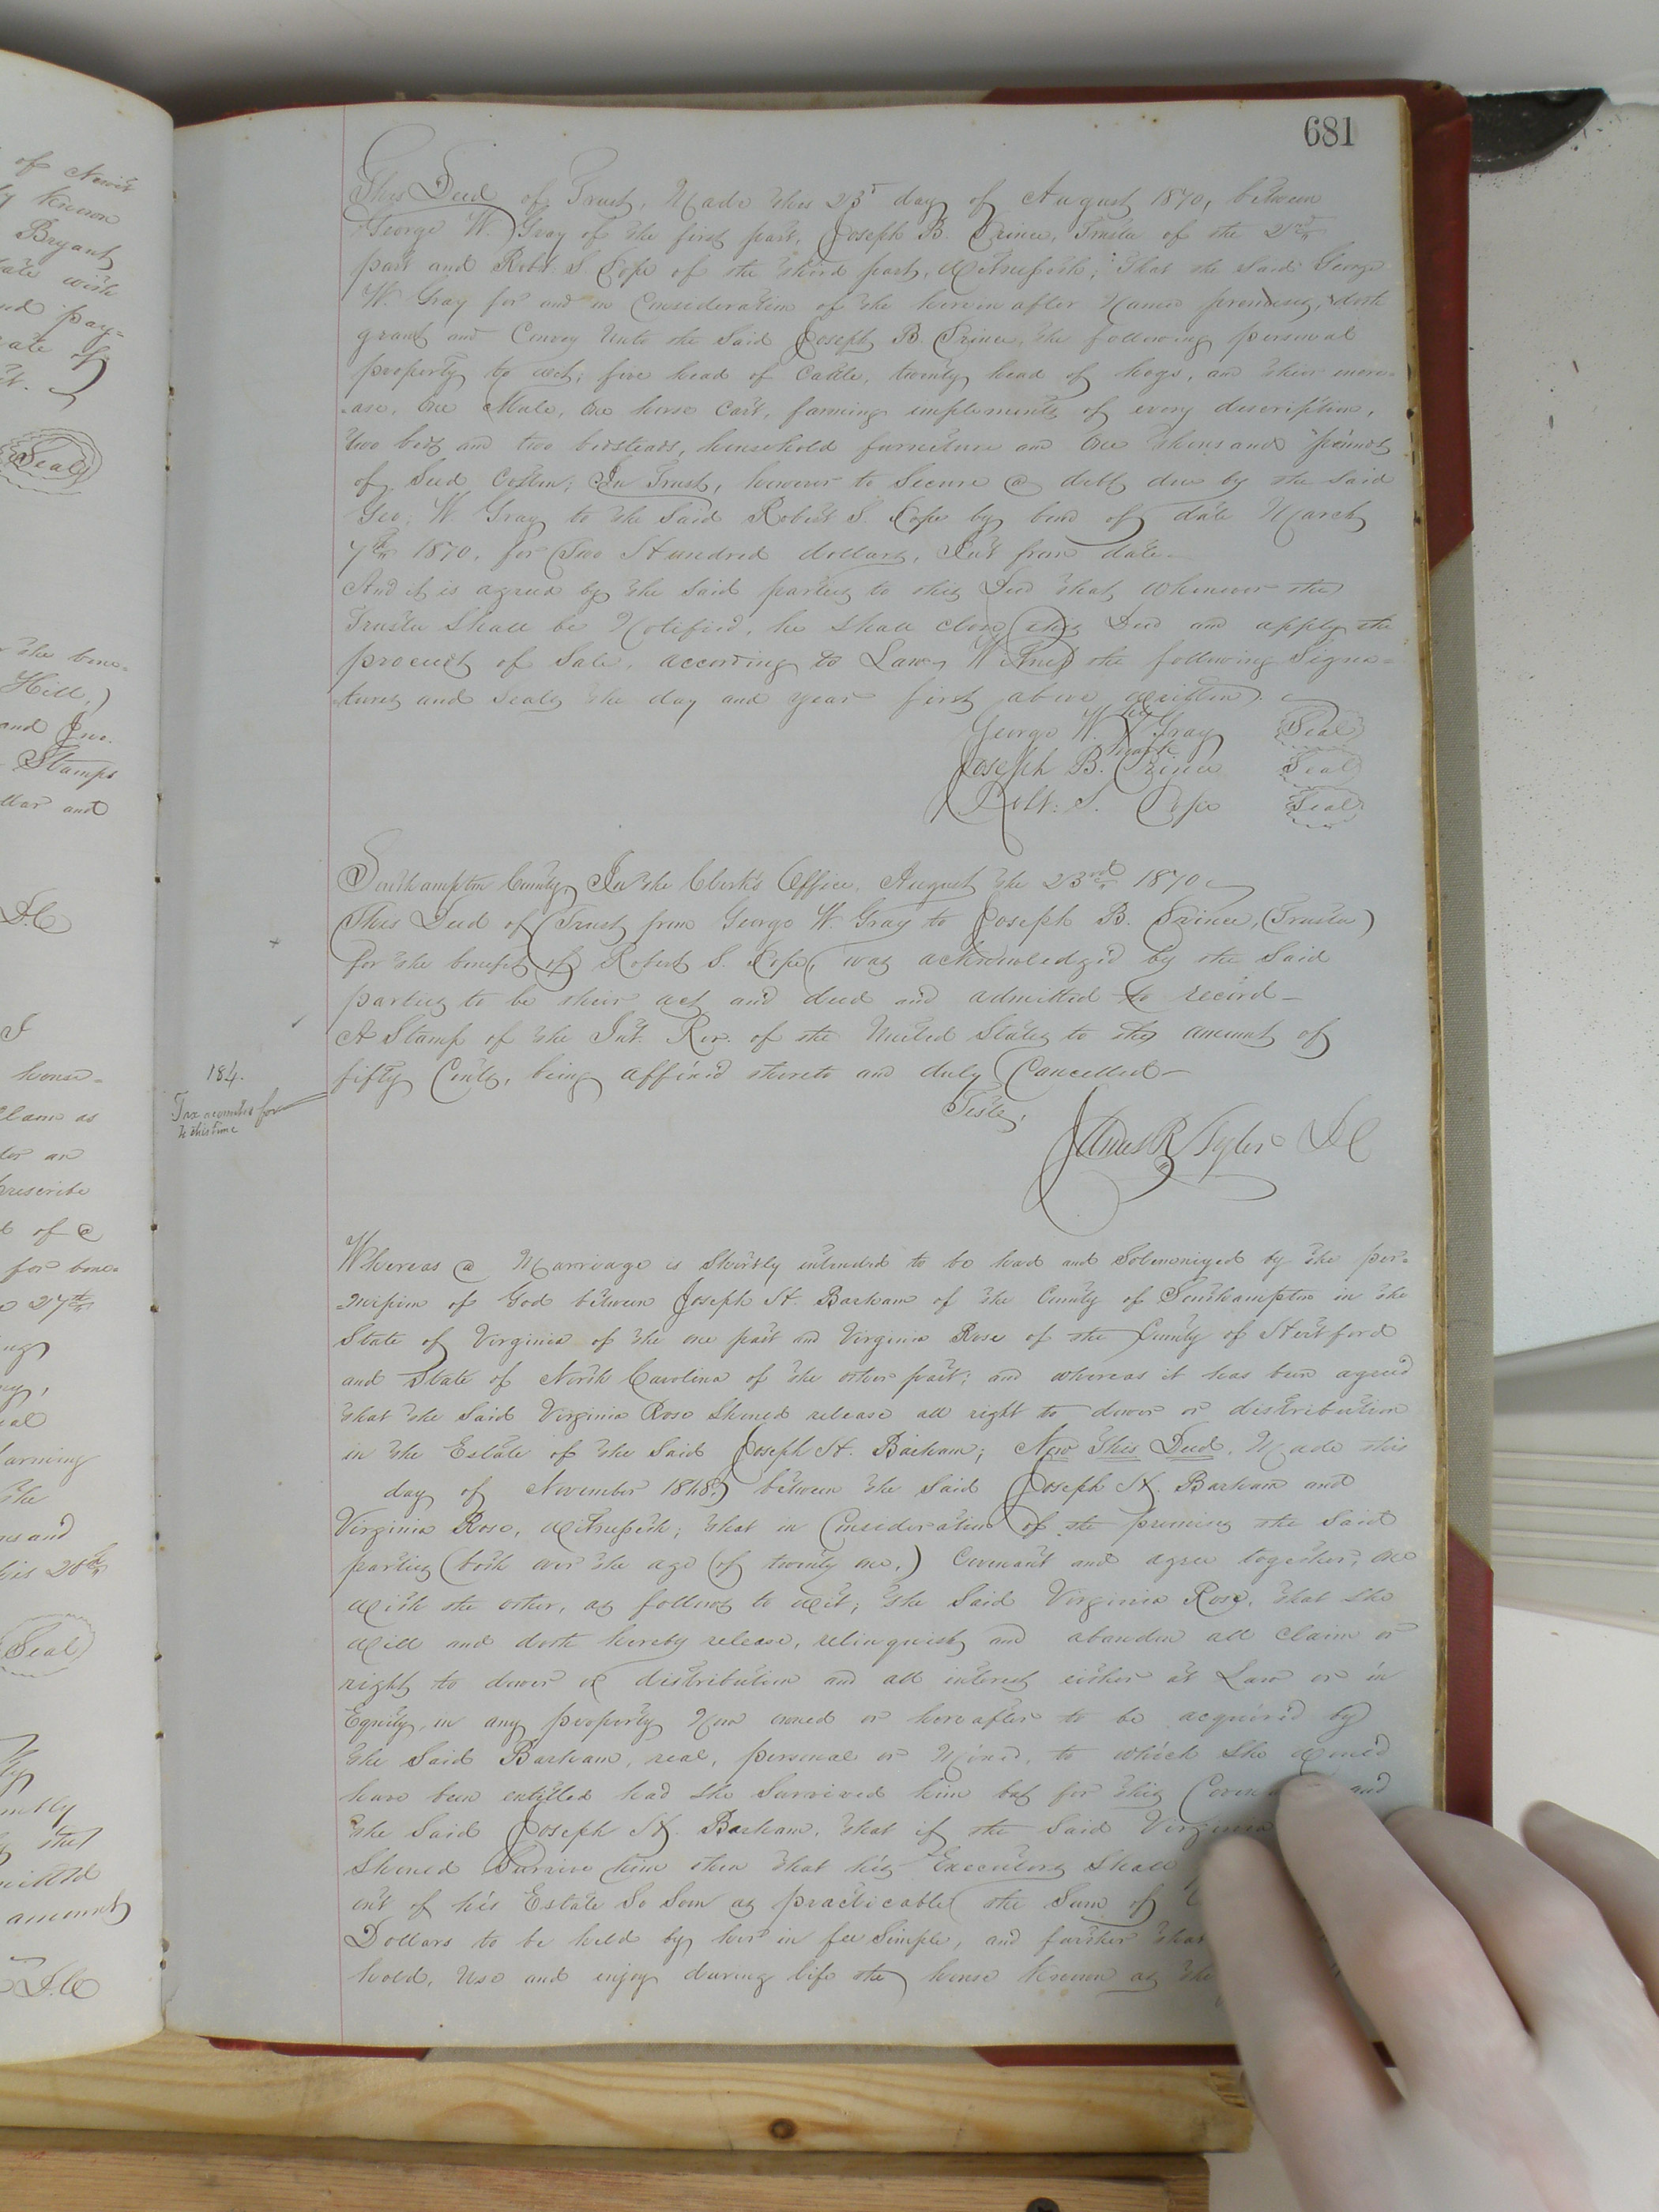 681
This Deed of Trust, Made this 23d day of August 1870, between
George W. Gray of the first part, Joseph B. Prince, Trustee of the 2nd
part and Robt. S. Pope of the third part, Witnesseth; That the said George
W. Gray for and in Consideration of the herein after Named premises, doth
grant and Convey Unto the Said Joseph B. Prince, the following personal
property to wit; five head of Cattle, twenty head of hogs, and their incre-
-ase, One Mule, One horse Cart, farming implements of every description,
two beds and two bedsteads, household furniture and One thousand pounds
of Seed Cotton; In Trust, however to Secure a debt due by the said
Geo. W. Gray to the Said Robert S. Pope by bond of date March
7th 1870, for Two Hundred dollars, Int from date-
And it is agreed by the Said parties to this Deed that Whenever the
Trustee Shall be Notified, he shall close this Deed and apply the
proceeds of Sale, according to Law, Witness the following Signa-
tures and seals the day and year first above written).
his
George W. X Gray Seal
mark
Joseph B. Prince Seal
Robt: S. Pope Seal
Southampton County, In the Clerk's Office, August the 23rd 1870
This Deed of Trust from George W. Gray to Joseph B. Prince, (Trustee)
for the benefit of Robert S. Pope, was acknowledg'd by the Said
parties to be their act and deed and admitted to record-
A Stamp of the Int. Rev. of the United States to the amount of
fifty Cents, being affix'd thereto and duly Cancelled-
184.
Tax accounted for
to this time
Teste,
James R Tyler D.C
Whereas a Marriage is Shortly intended to be had and Solemnized by the per-
-mission of God between Joseph H. Barham of the County of Southampton in the
State of Virginia of the one part and Virginia Rose of the County of Hertford
and State of North Carolina of the other part; and whereas it has been agreed
that the Said Virginia Rose Should release all right to dower or distribution
in the Estate of the Said Joseph H. Barham; Now This Deed, Made this
day of November 1848, between the Said Joseph H. Barham and
Virginia Rose, Witnesseth; that in Consideration of the premises the Said
parties (both over the age of twenty one,) Covenant and agree together, one
With the other, as follows to wit; the Said Virginia Rose, that she
Will and doth hereby release, relinquish and abandon all claim or
right to dower or distribution and all interest either at Law or in
Equity, in any property Now owned or hereafter to be acquir'd by
the Said Barham, real, personal or Mixed, to which she would
have been entitled had she Survived him but for this and
the Said Joseph H. Barham, that if the Said Virginia
Should Survive him then that his Executors Shall
out of his Estate So Soon as practicable the Sum of
Dollars to be held by her in fee Simple, and further that
hold, Use and enjoy during life the house Known as the